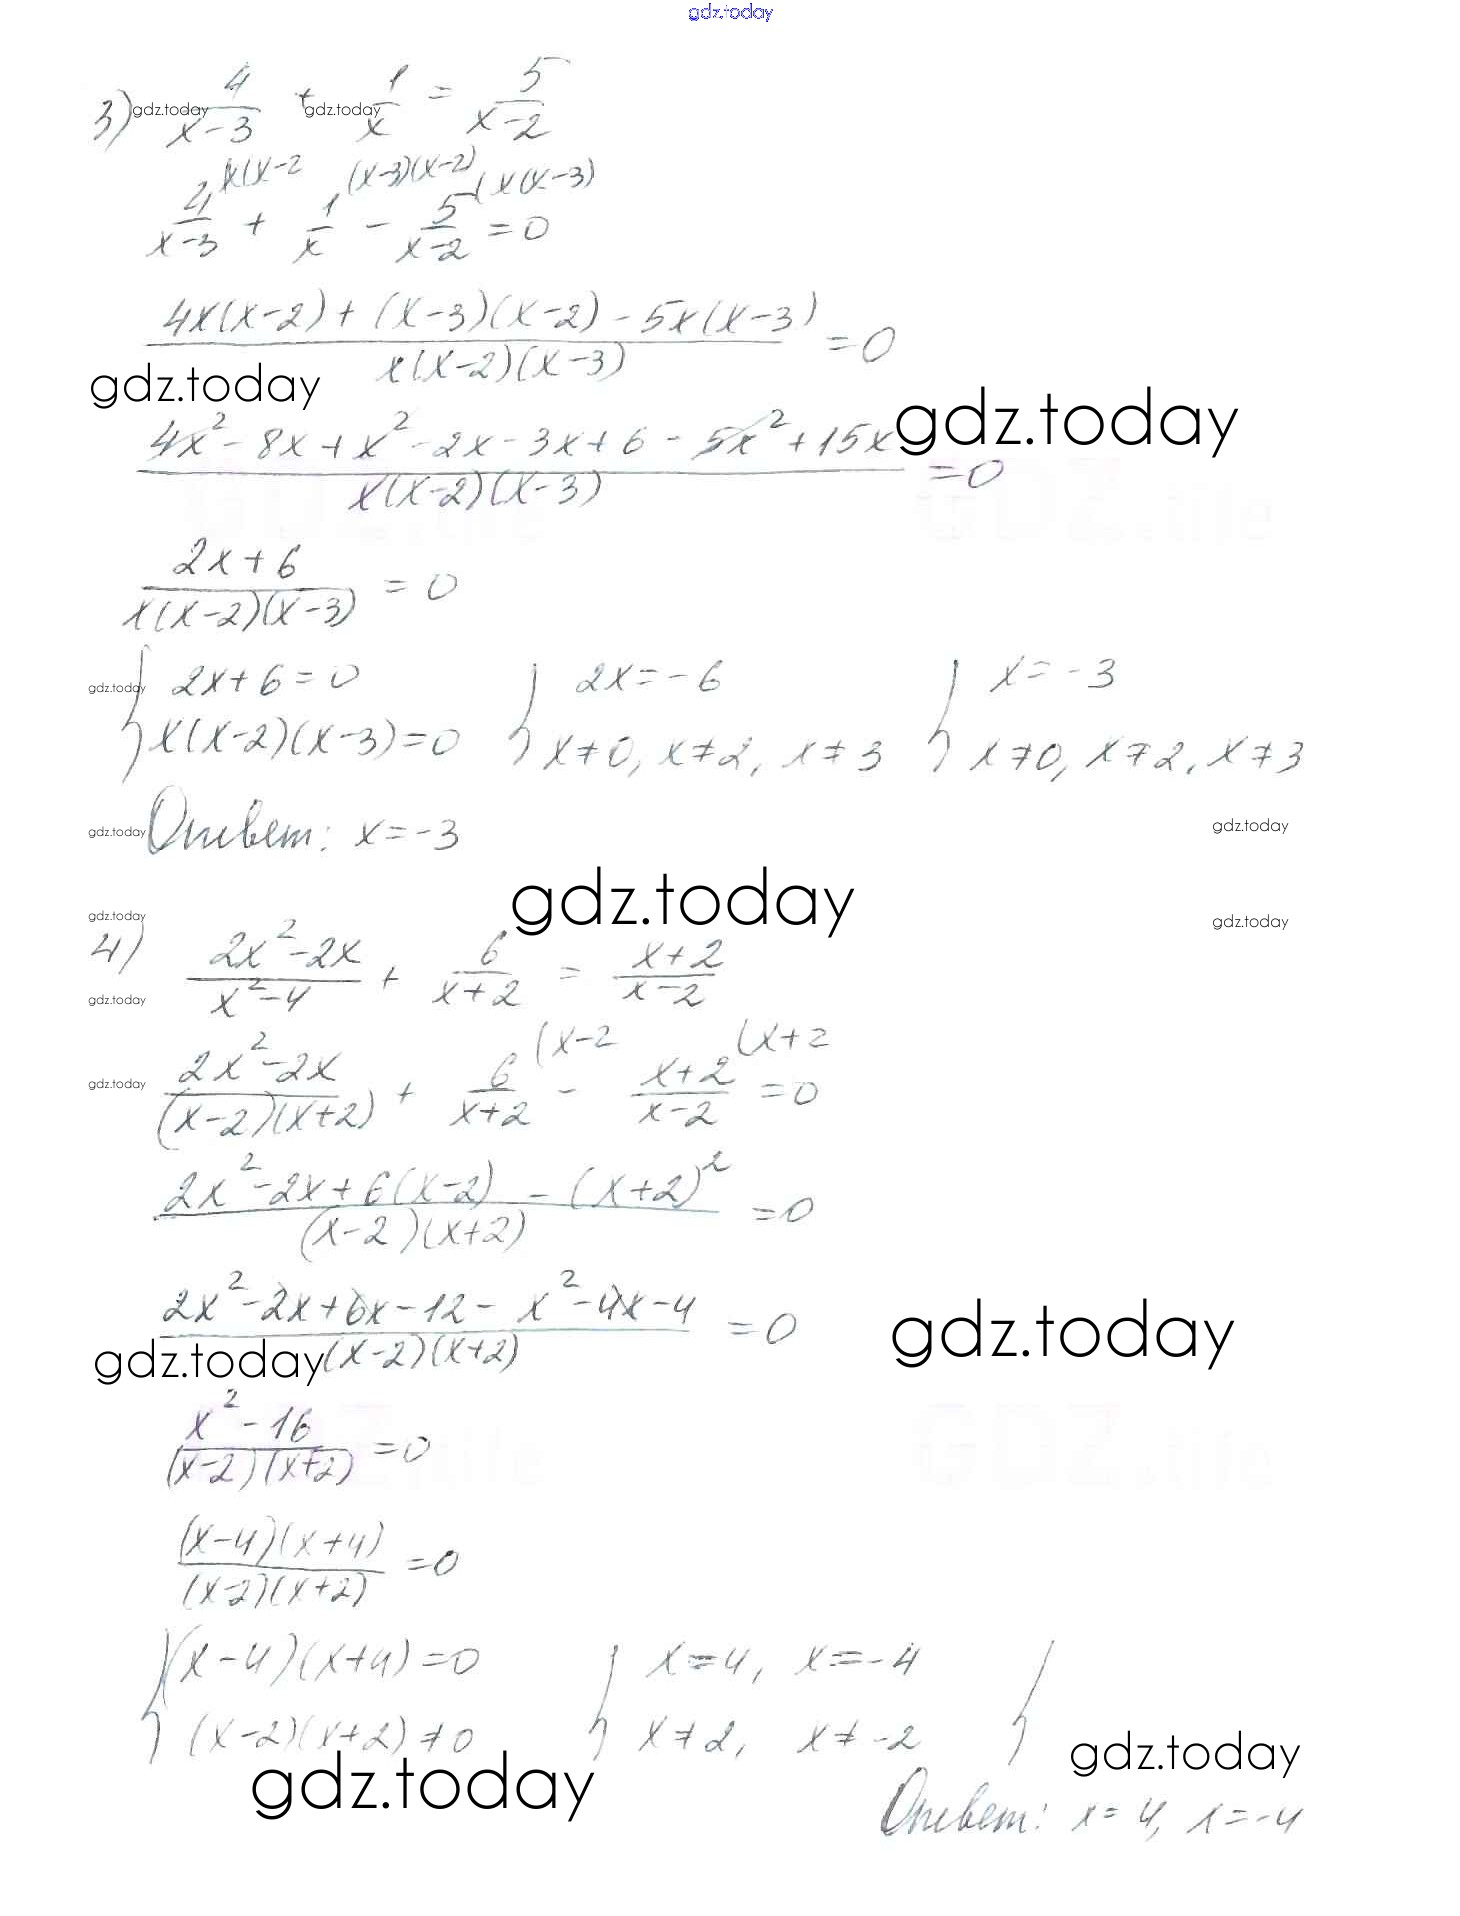 gdz.today
3) 4/(x-3) + 1/x = 5/(x-2)
gdz.today gdz.today
4/(x-3) (x(x-2 + 1/x (x-3)(x-2) - 5/(x-2) (x(x-3) = 0
(4x(x-2) + (x-3)(x-2) - 5x(x-3))/(x(x-2)(x-3)) = 0
gdz.today
gdz.today
(4x² - 8x + x² - 2x - 3x + 6 - 5x² + 15x)/(x(x-2)(x-3)) = 0
(2x + 6)/(x(x-2)(x-3)) = 0
{ 2x + 6 = 0 { 2x = -6 { x = -3
gdz.today
x(x-2)(x-3) = 0 x ≠ 0, x ≠ 2, x ≠ 3 x ≠ 0, x ≠ 2, x ≠ 3
gdz.today Ответ: x = -3 gdz.today
gdz.today
gdz.today gdz.today
4) (2x² - 2x)/(x² - 4) + 6/(x+2) = (x+2)/(x-2)
gdz.today
(2x² - 2x)/((x-2)(x+2)) + 6/(x+2) (x-2 - (x+2)/(x-2) (x+2 = 0
gdz.today
(2x² - 2x + 6(x-2) - (x+2)²)/((x-2)(x+2)) = 0
(2x² - 2x + 6x - 12 - x² - 4x - 4)/((x-2)(x+2)) = 0
gdz.today
gdz.today
(x² - 16)/((x-2)(x+2)) = 0
((x-4)(x+4))/((x-2)(x+2)) = 0
{ (x-4)(x+4) = 0 { x = 4, x = -4 {
(x-2)(x+2) ≠ 0 x ≠ 2, x ≠ -2
gdz.today gdz.today
Ответ: x = 4, x = -4